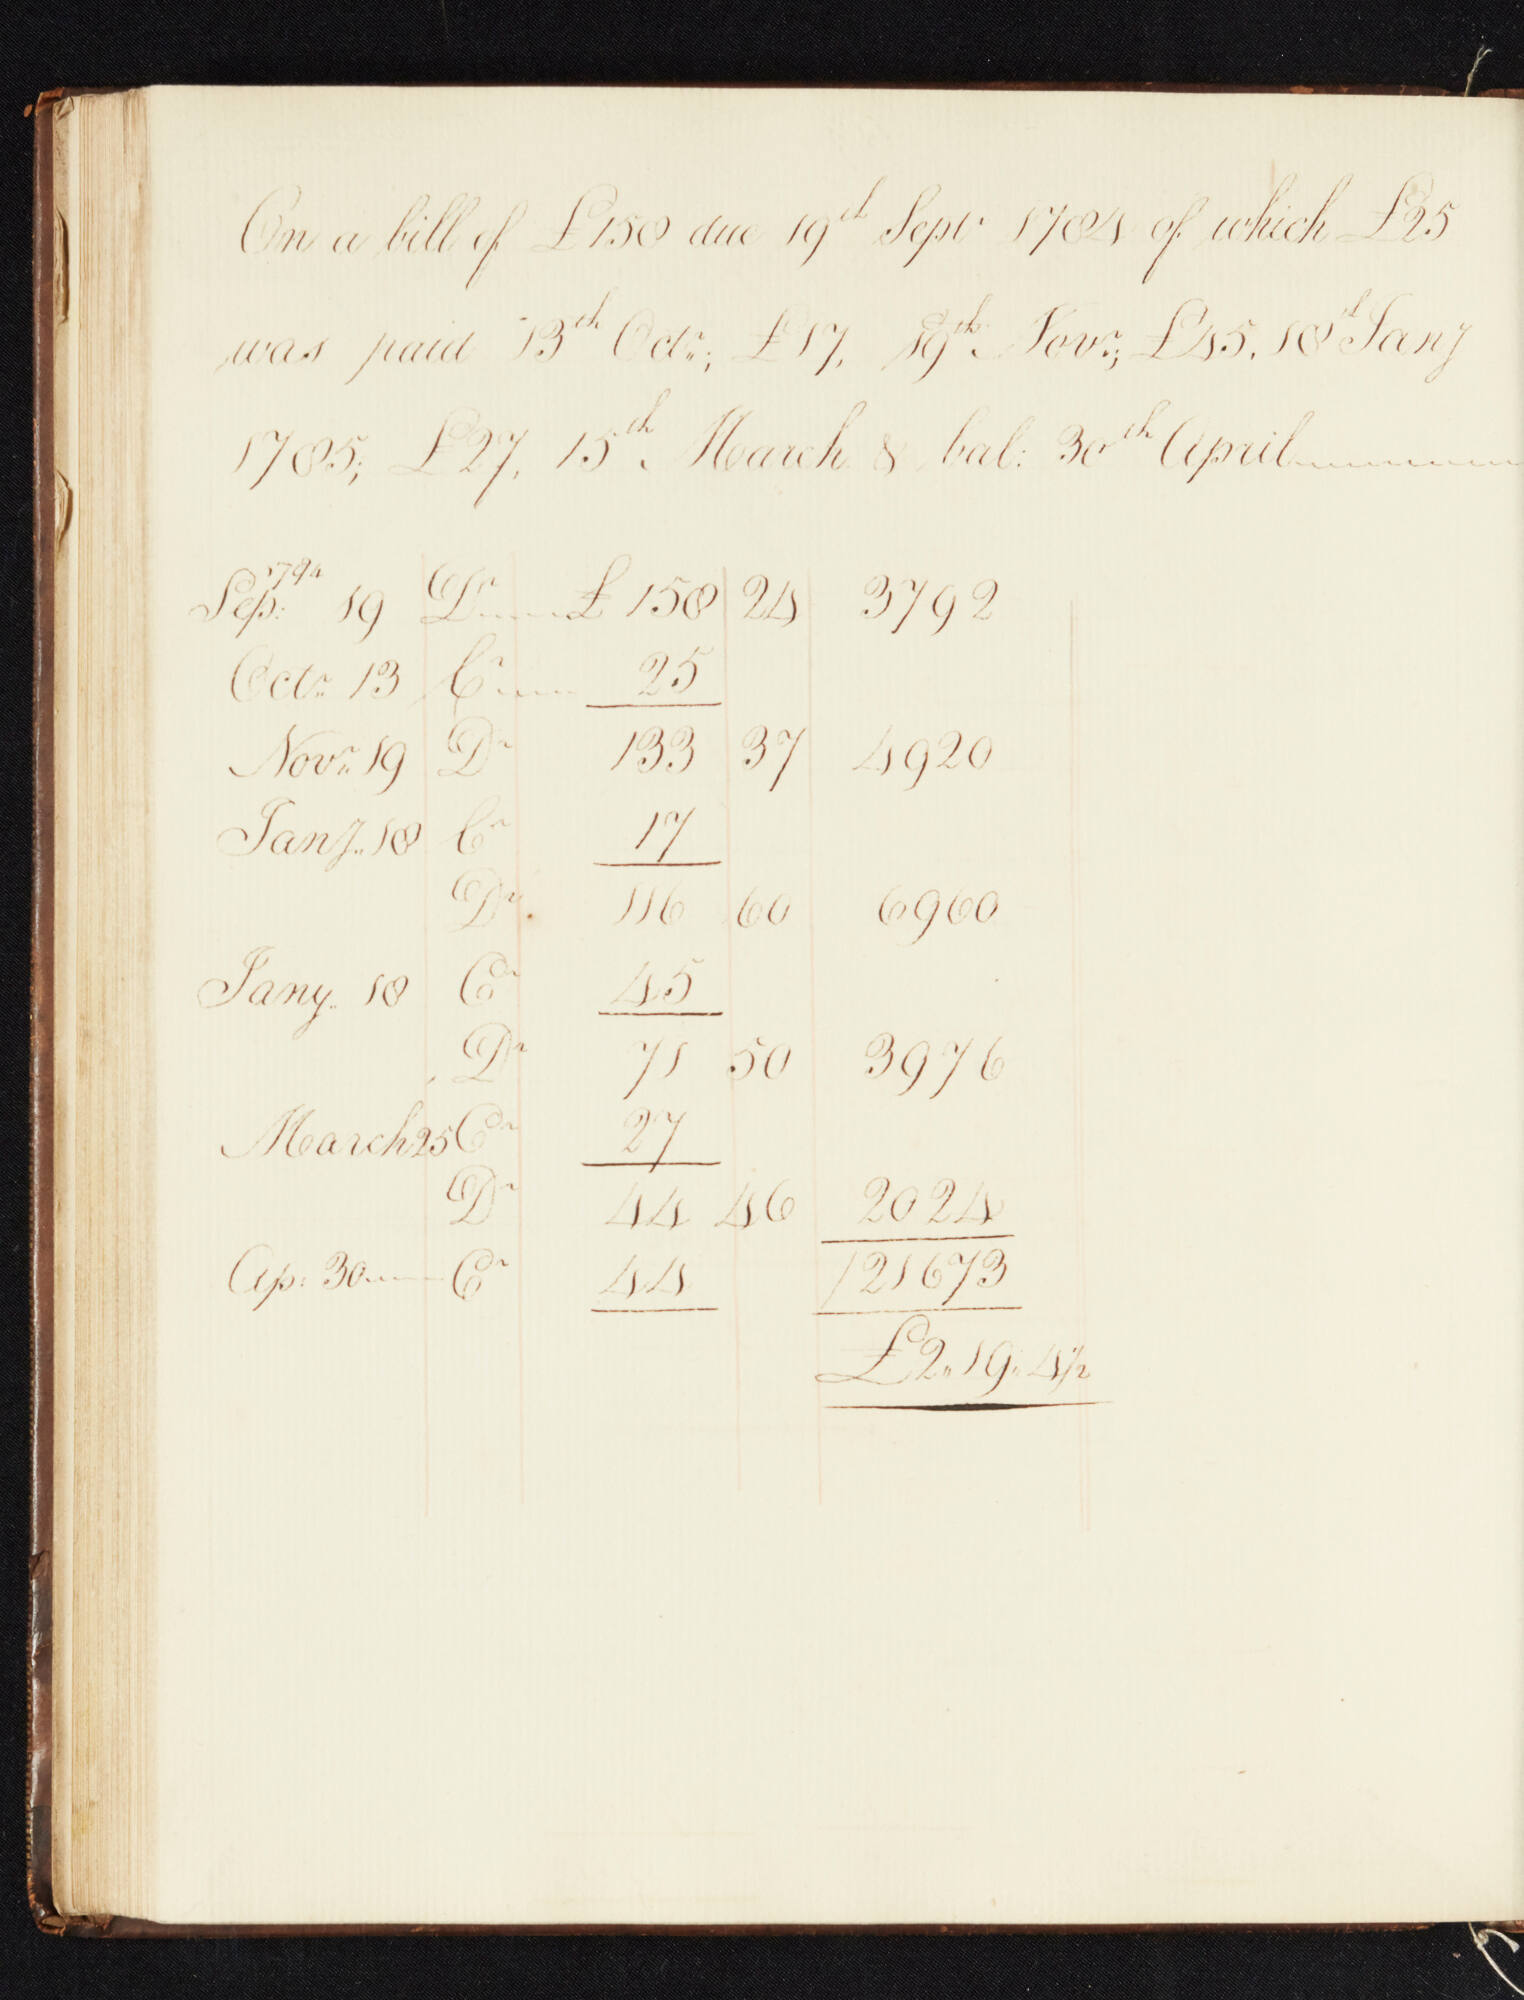 On a bill of £158 due 19th Sepr 1784 of which £25
was paid 13th Octr.; £17, 19th Novr; £45, 18th Jany
1785; £27, 15th March & bal: 30th April
1784
Sep: 19 Dr £ 158 24 3792
Octr. 13 Cr 25
Novr. 19 Dr 133 37 4920
Jany. 18 Cr 17
Dr 116 60 6960
Jany. 18 Cr 45
Dr 71 50 3976
March 25 Cr 27
Dr 44 46 2024
Ap: 30 Cr 44 121673
£2„19„4½